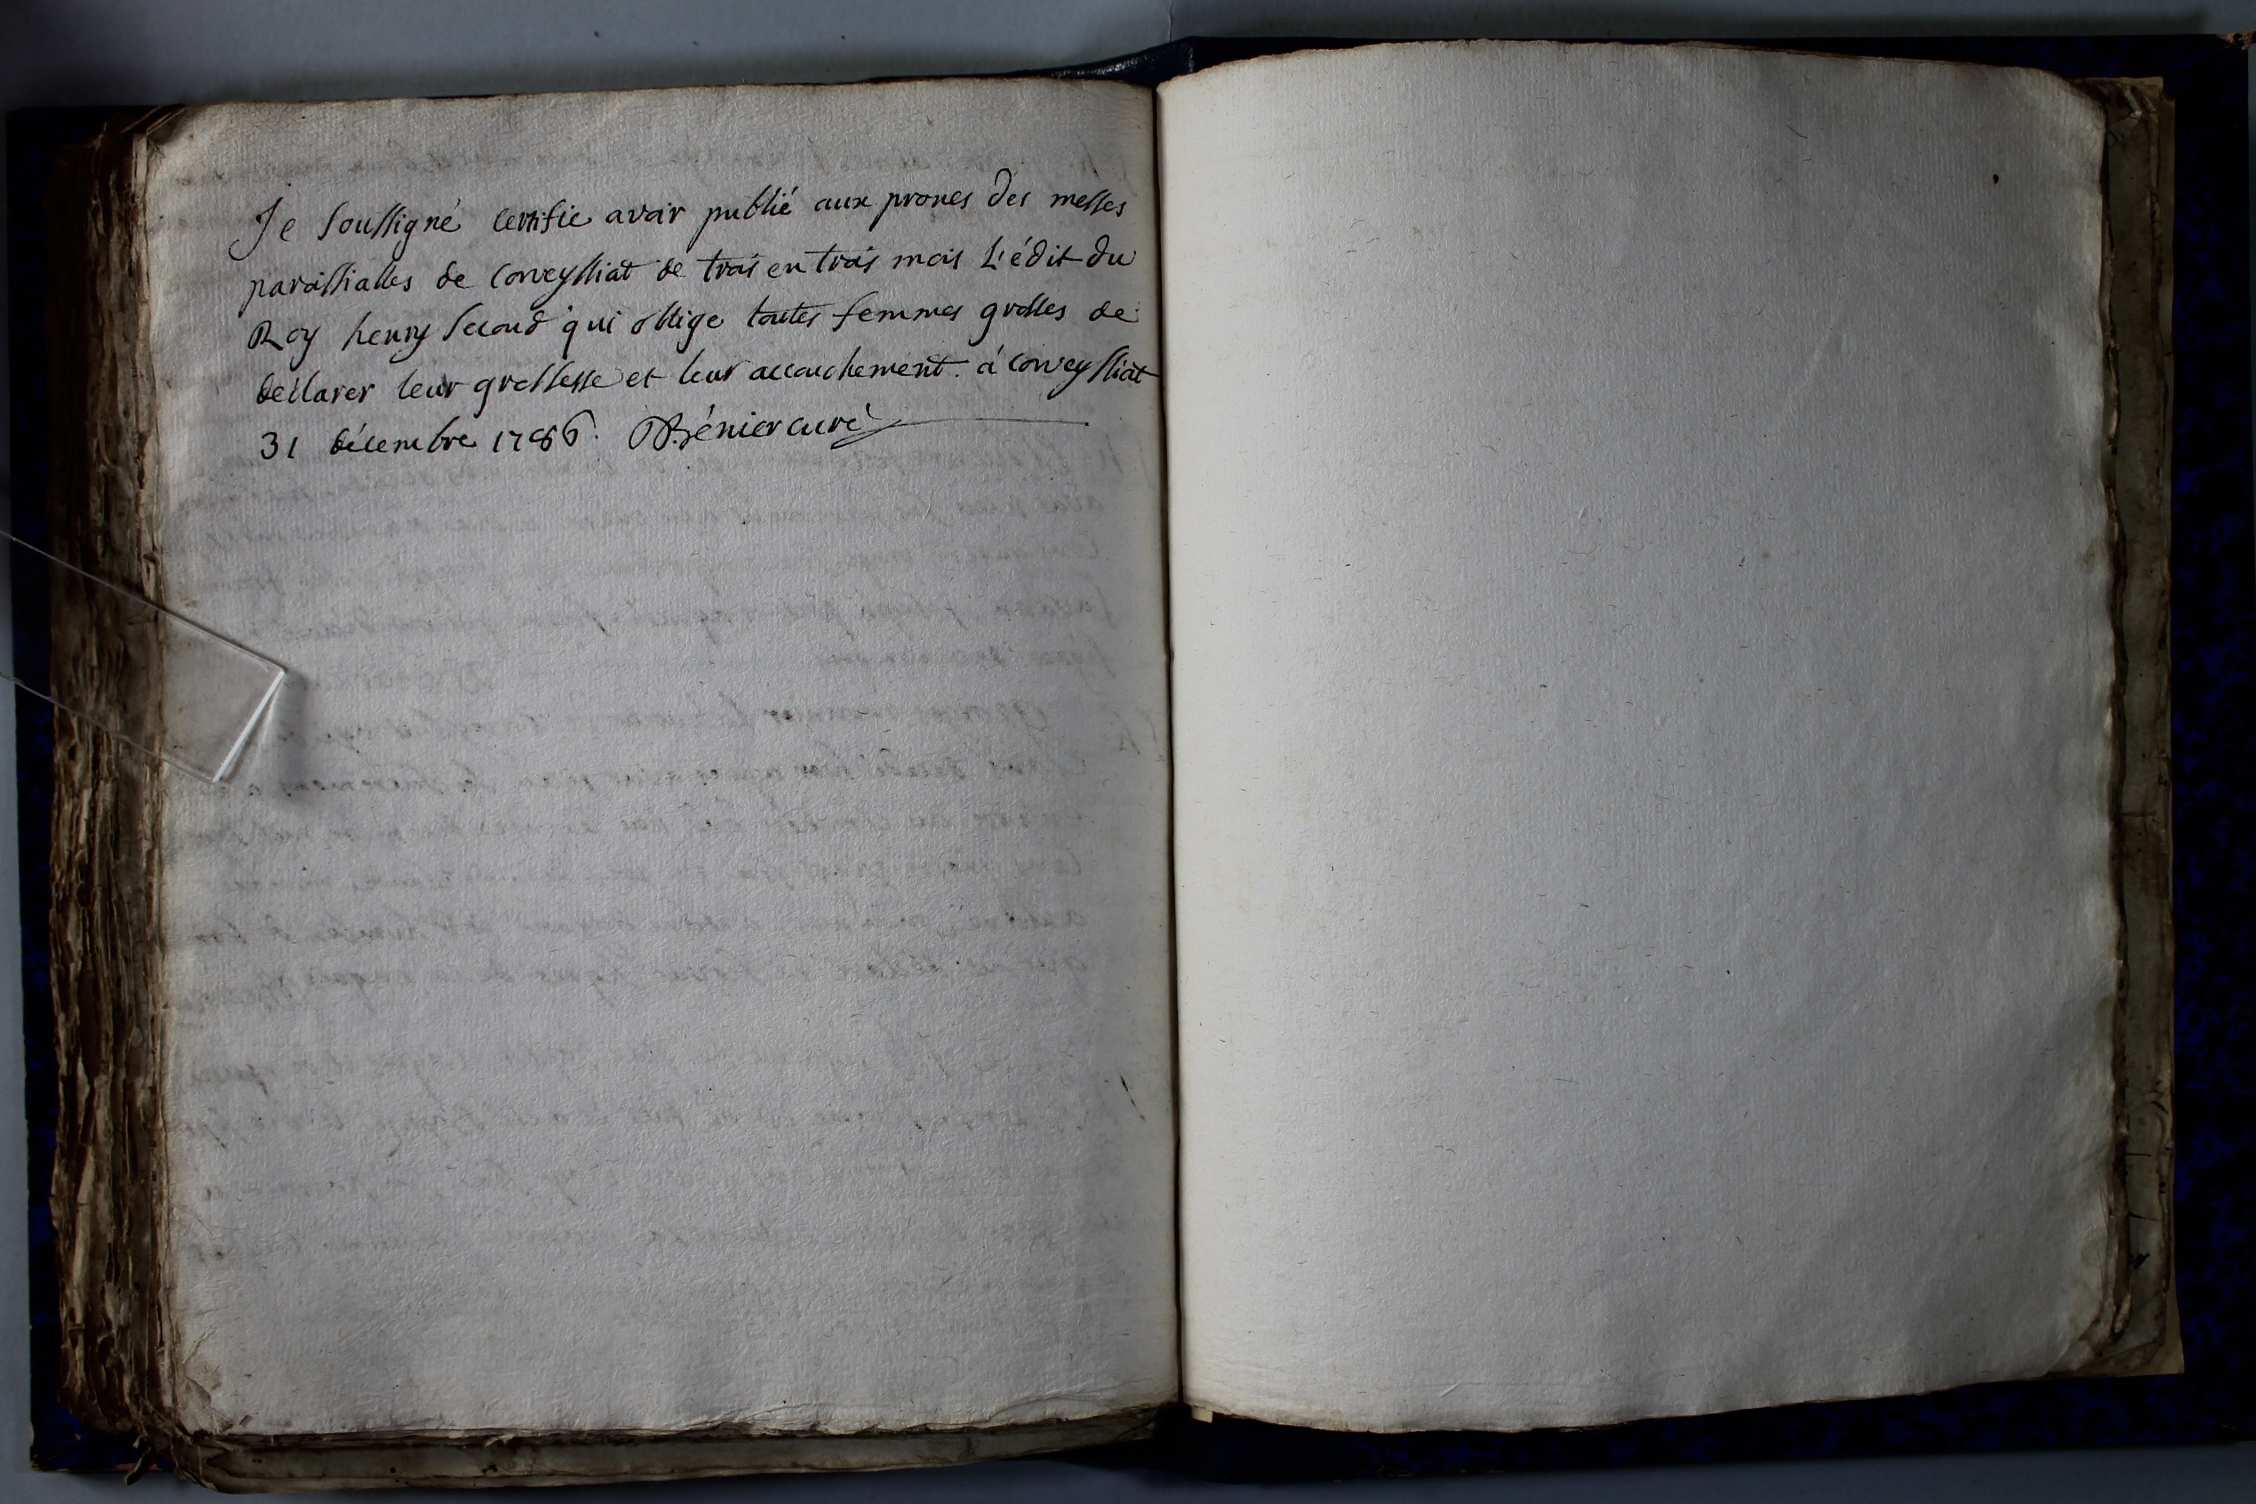 Je soussigné certifie avoir publié aux prones des messes
paroissialles de Corveyssiat de trois en trois mois L'édit du
Roy henry second qui oblige toutes femmes grosses de
déclarer leur grossesse et leur accouchement. à Corveyssiat
31 décembre 1786. Bénier curé